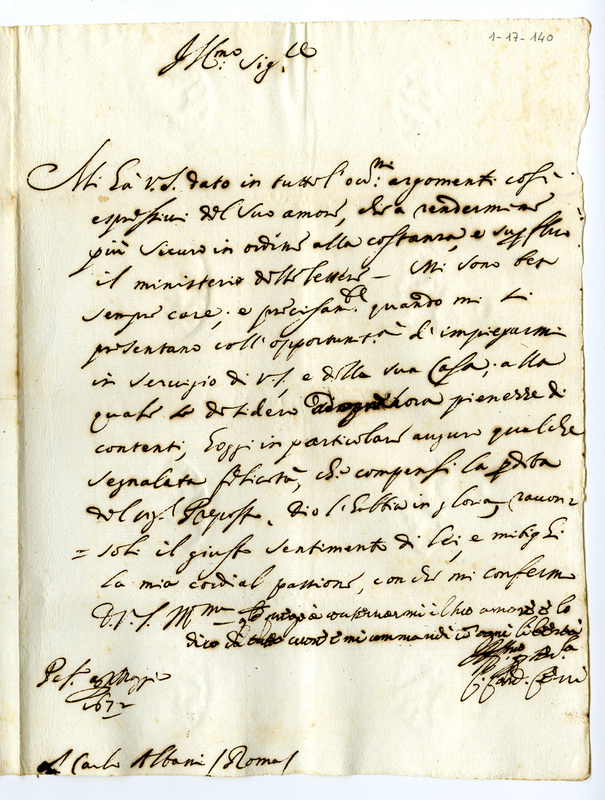 1-17-140
Ill.mo Sig.re
Mi hà V.S. dato in tutte l'occ.ni argomenti così
espressivi del suo amore, che a rendermene
più sicuro in ordine alla costanza, è superfluo
il ministerio delle lettere - Mi sono ben
sempre care, e precisam.te quando mi si
presentano coll'opportunità d'impiegarmi
in servigio di V.S. e della sua Casa; alla
quale desidero ogni hora pienezze di
contenti, hoggi in particolare auguro qualche
segnalata felicità, che compensi la perdita
del sig.r Preposto. Dio l'habbia in gloria, raccon=
=soli il giusto sentimento di lei, e mitighi
la mia cordial passione, con che mi confermo
D.V.S. Ill.ma prego à conservarmi il suo amore e lo
dico di tutto cuore e mi commandi con ogni libertà
Pes. Maggio
1672
Card.
Carlo Albani (Roma)